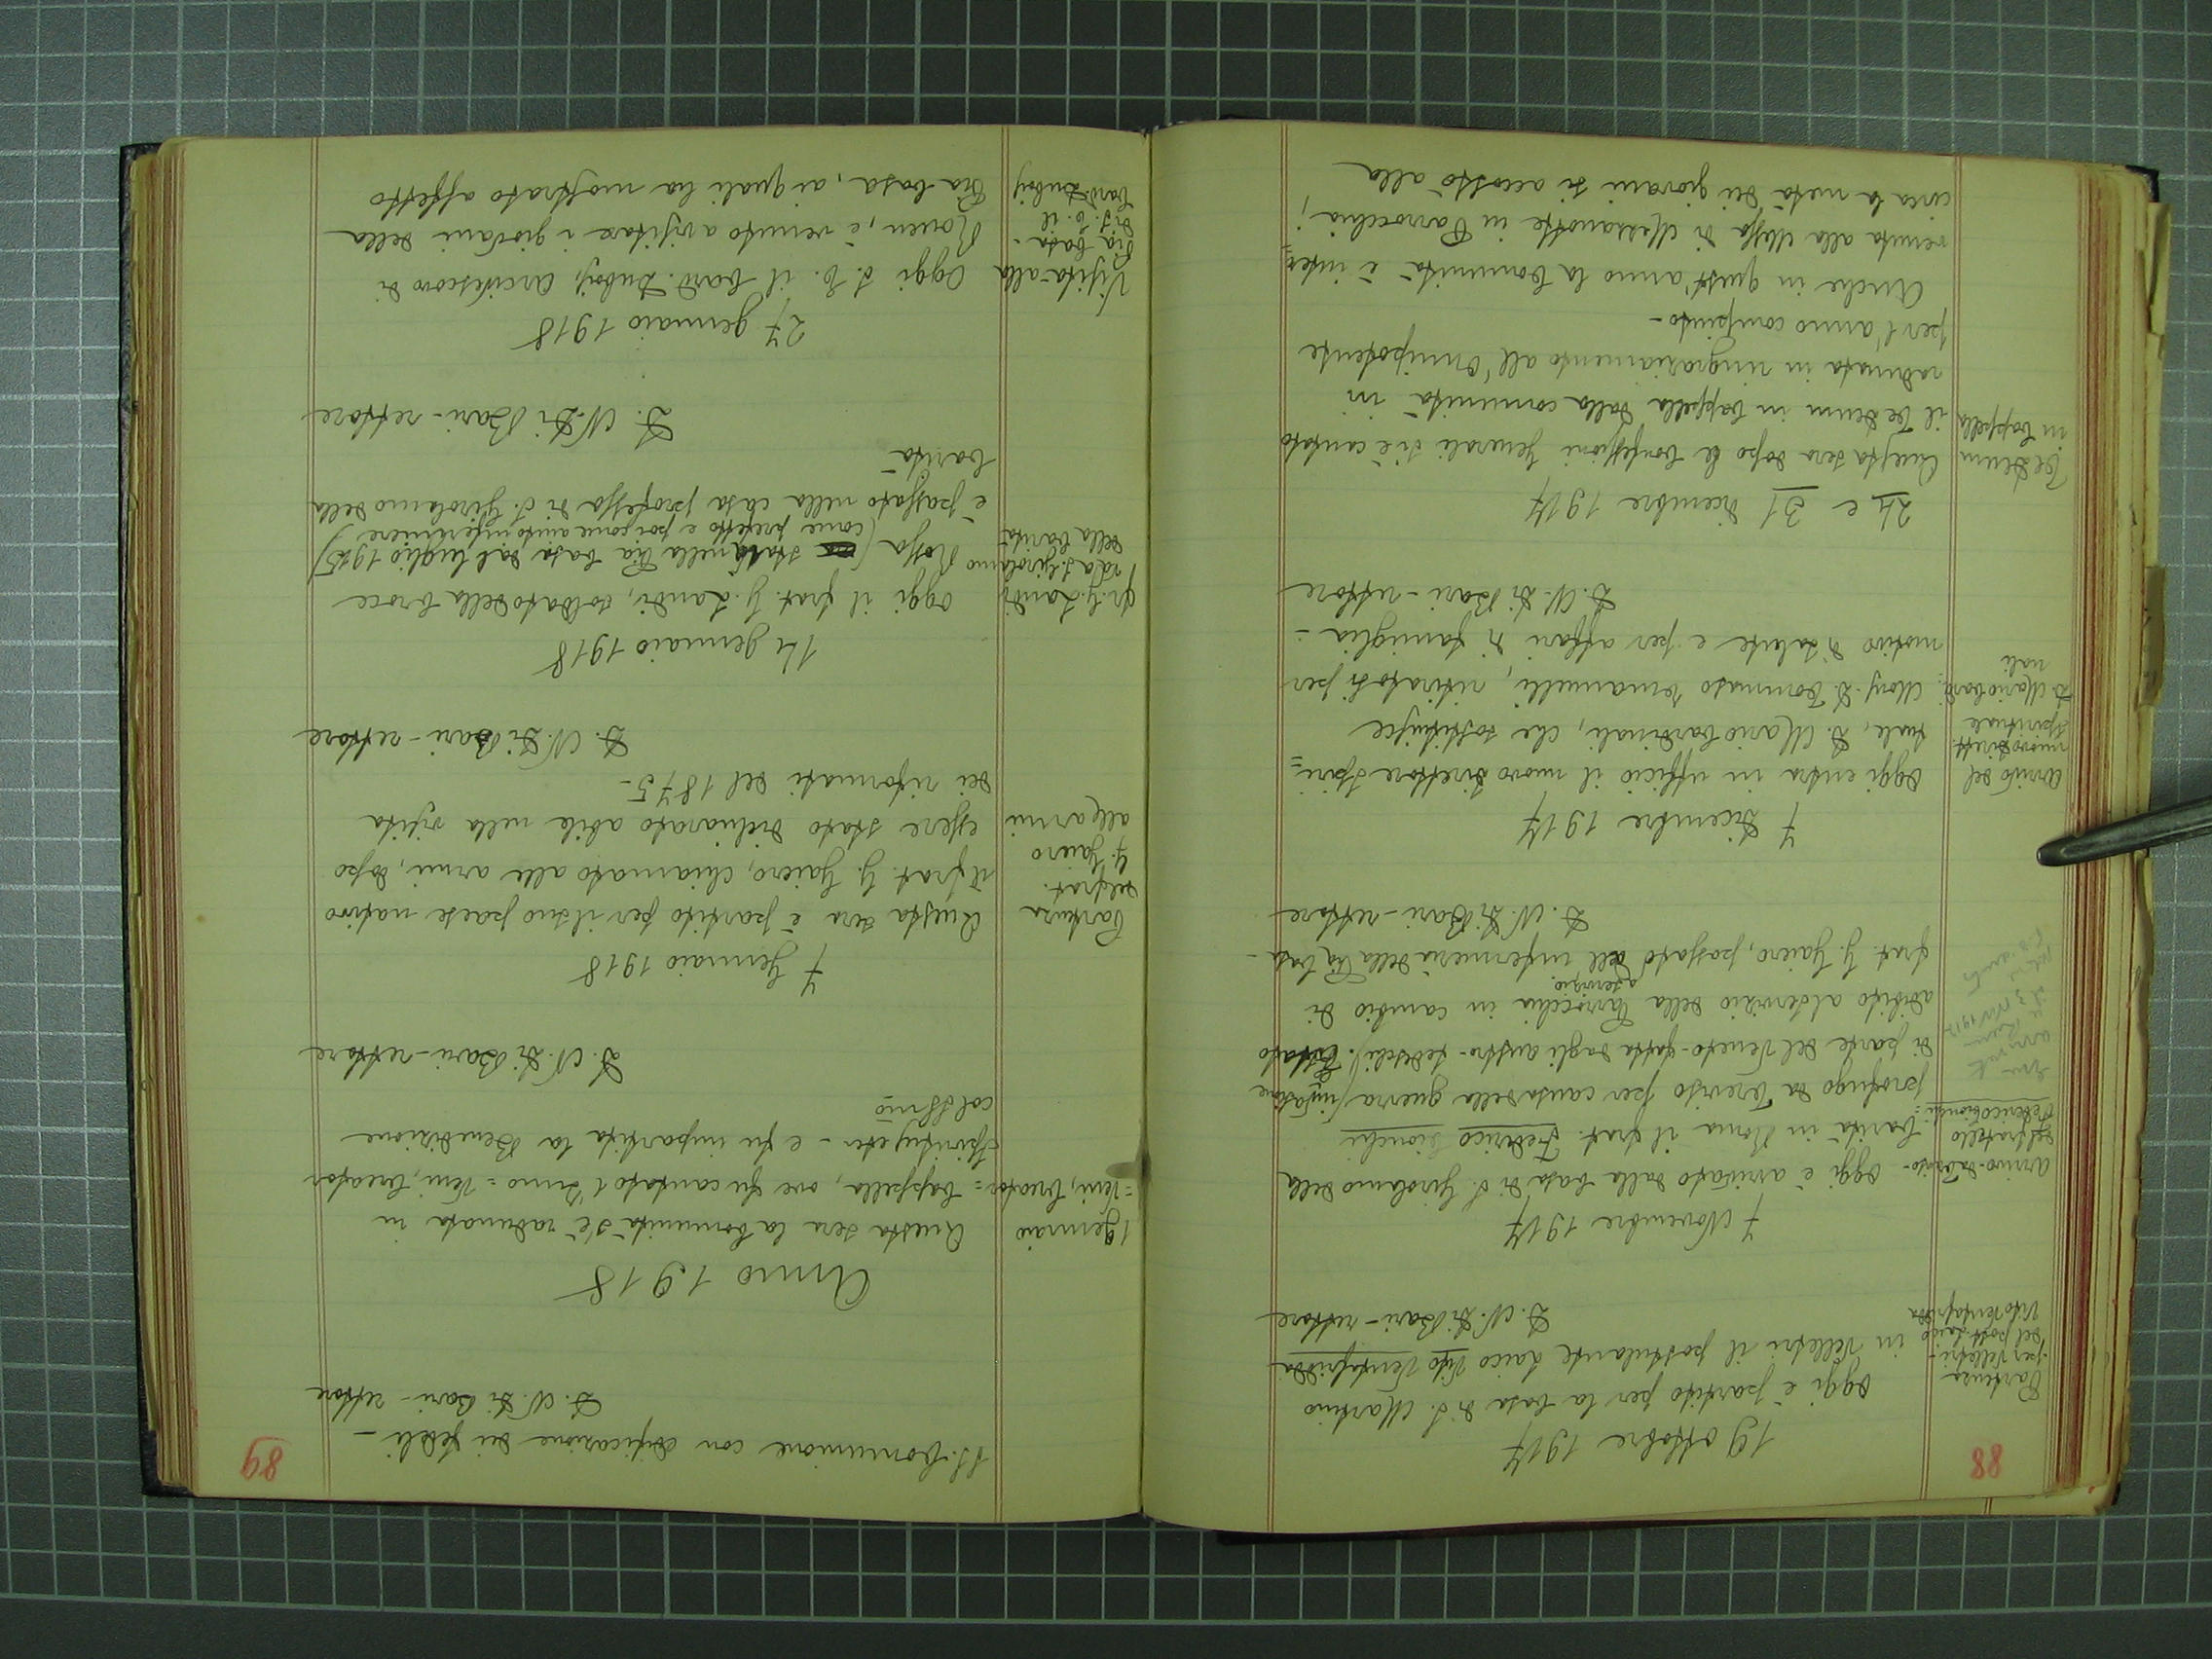 88
19 ottobre 1917
Partenza
per Velletri
del post. laico
Vito Ventafridda
Oggi è partito per la Casa di S. Martino
in Velletri il postulante laico Vito Ventafridda
D. N. Di Bari - rettore
7 Novembre 1917
arrivo da Treviso
del fratello
Federico Bionchi
Oggi è arrivato dalla Casa di S. Girolamo della
Carità in Roma il frat. Federico Cionchi
profugo da Treviso per causa della guerra (invasione
di parte del Veneto fatta dagli austro-tedeschi). È stato
adibito al servizio della Parrocchia in cambio di
a servizio
frat. G. Gaiero, passato all'infermeria della Pia Casa -
D. N. Di Bari - rettore
7 dicembre 1917
arrivo del
nuovo dirett.
spirituale
D. Mario Cardi=
nali
Oggi entra in ufficio il nuovo direttore spiri=
tuale, D. Mario Cardinali, che sostituisce
Mons. D. Tommaso Iemannelli, ritiratosi per
motivo di salute e per affari di famiglia -
D. N. Di Bari - rettore
24 e 31 dicembre 1917
Te Deum
in Cappella
Questa sera dopo le Confessioni generali si è cantato
il Te Deum in Cappella dalla comunità in
radunata in ringraziamento all'Onnipotente
per l'anno compiuto -
Anche in quest'anno la Comunità è inter=
venuta alla Messa di Mezzanotte in Parrocchia;
circa la metà dei giovani si accostò alla
89
SS. Comunione con edificazione dei fedeli -
D. N. Di Bari - rettore
Anno 1918
1 gennaio
= Veni, Creator =
Questa sera la Comunità s'è radunata in
Cappella, ove fu cantato l'Inno = Veni, Creator
Spiritus, etc - e fu impartita la Benedizione
col SSmo
D. N. Di Bari - rettore
7 Gennaio 1918
Partenza
del frat.
G. Gaiero
alle armi
Questa sera è partito per il suo paese nativo
il frat. G. Gaiero, chiamato alle armi, dopo
essere stato dichiarato abile nella visita
dei riformati del 1875 -
D. N. Di Bari - rettore
14 gennaio 1918
fr. G. Landi
va a S. Girolamo
della Carità
Oggi il frat. G. Landi, soldato della Croce
Rossa (stato nella Pia Casa dal luglio 1915)
come prefetto e poi come aiuto infermiere
è passato nella casa professa di S. Girolamo della
Carità
D. N. Di Bari - rettore
27 gennaio 1918
Visita alla
Pia Casa -
di S. E. il
Card. Dubois
Oggi S. E. il Card. Dubois, Arcivescovo di
Rouen, è venuto a visitare i giovani della
Pia Casa, ai quali ha mostrato affetto